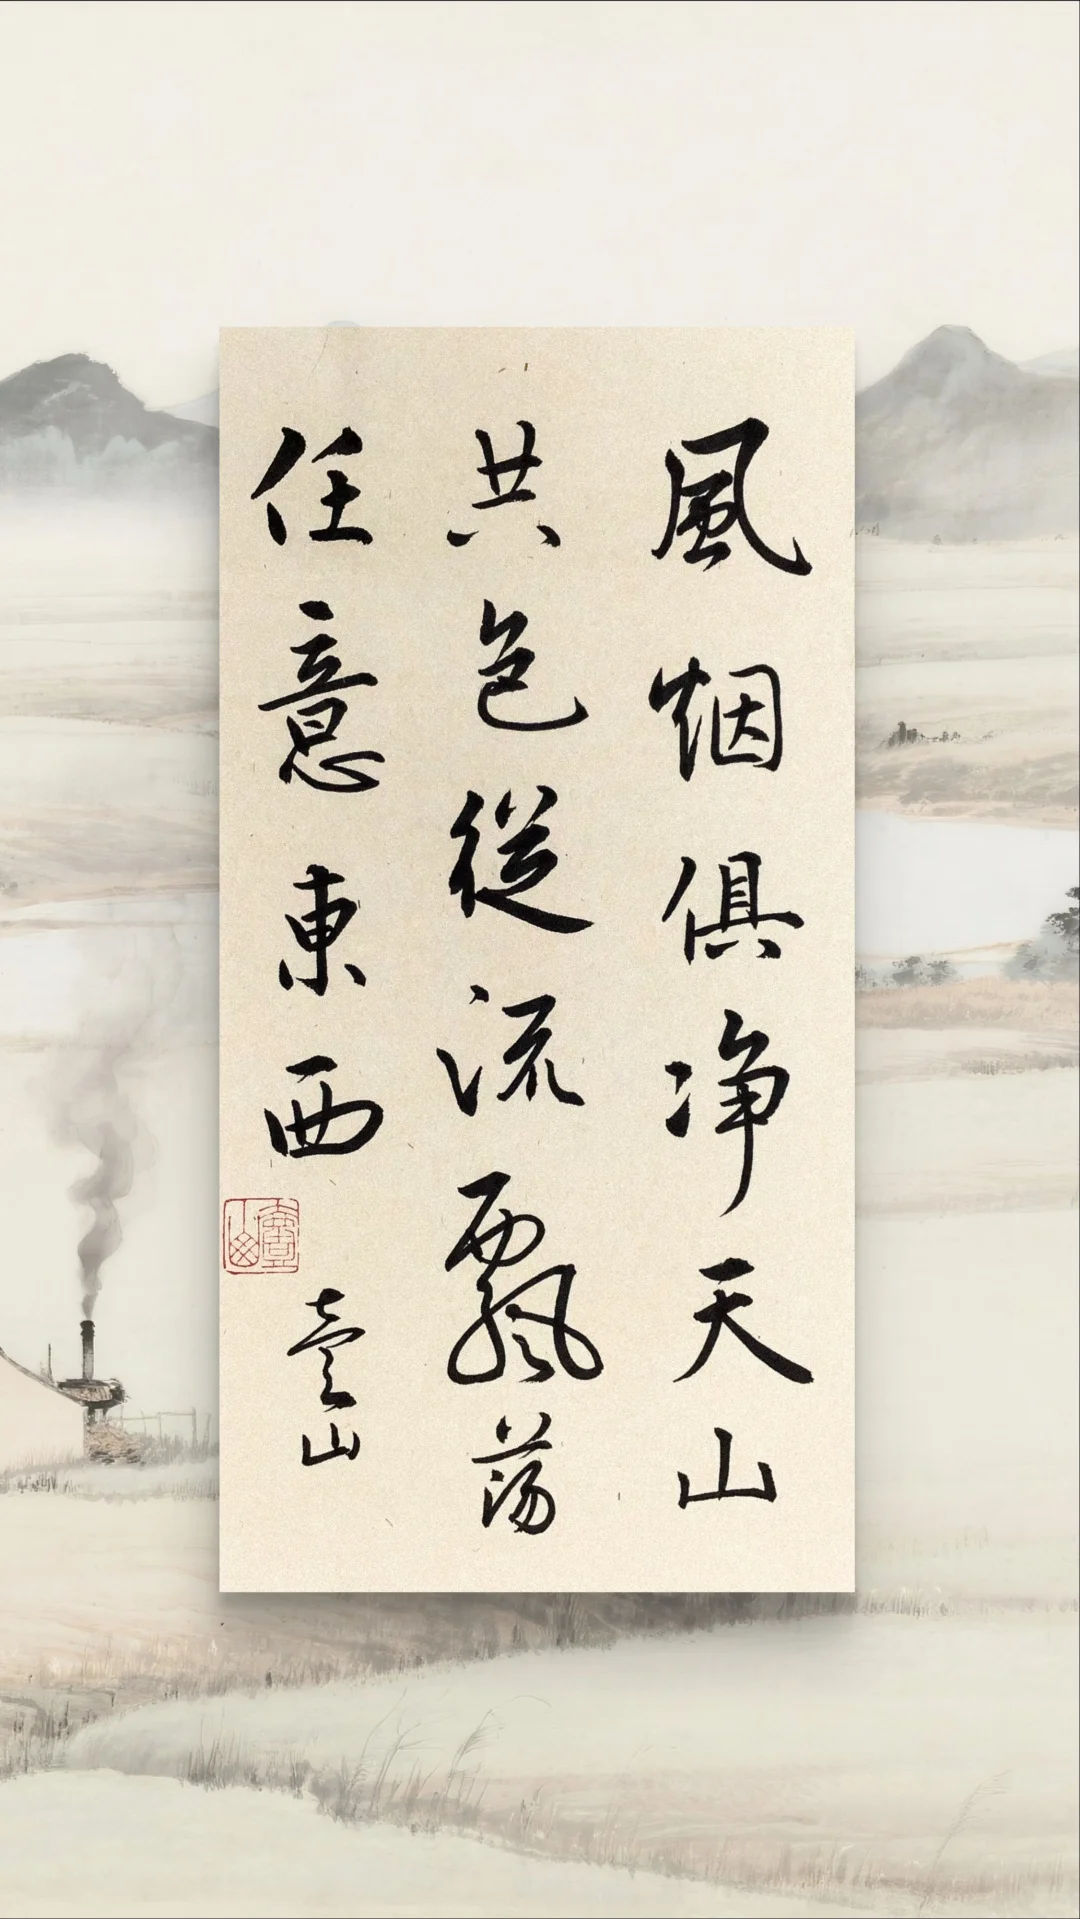 風烟俱净天山
共色從流飄荡
任意東西
山